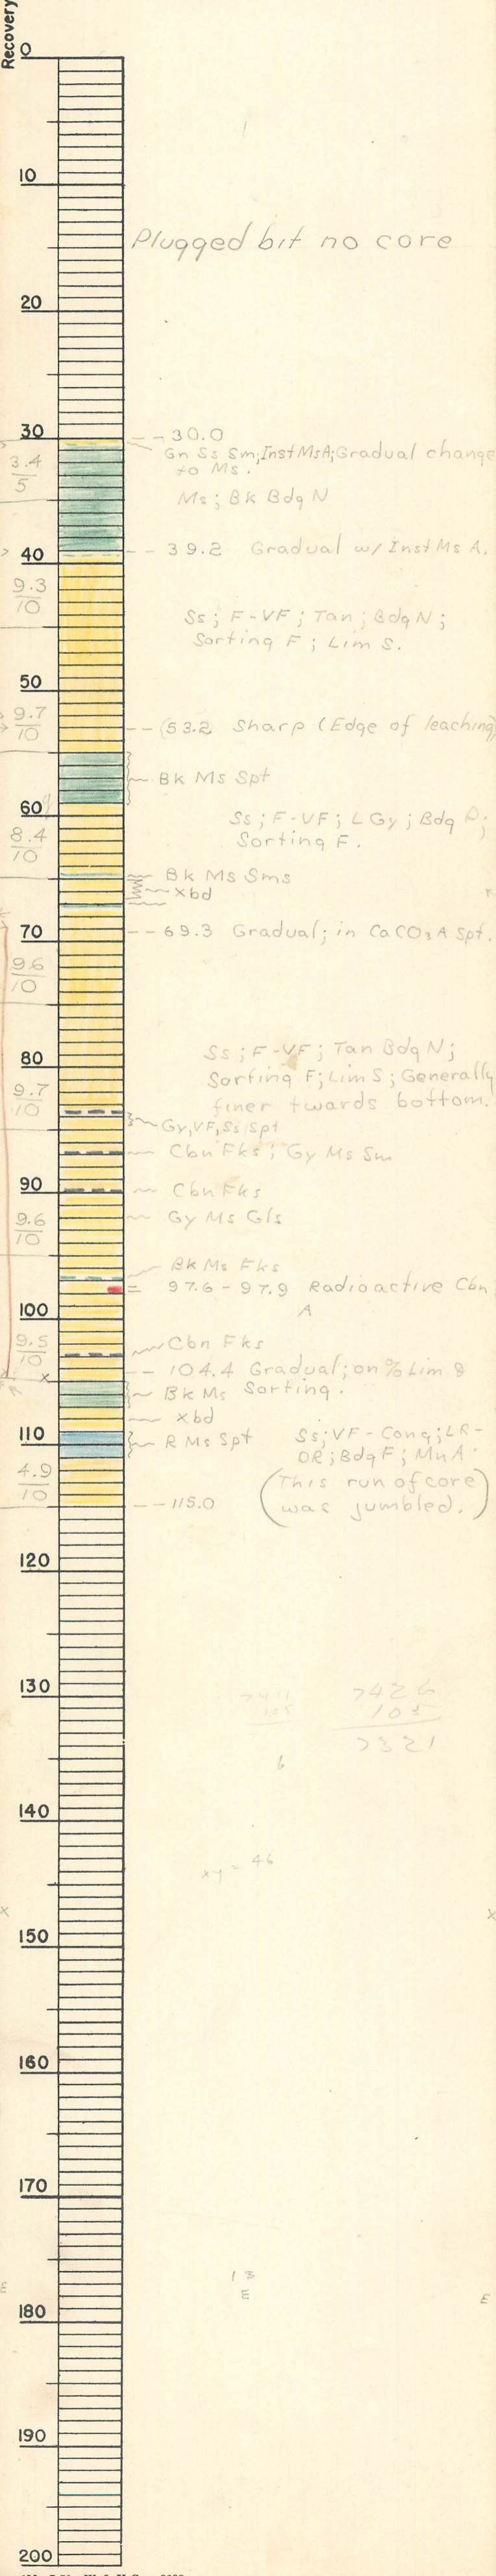 Recovery
0
10
Plugged bit no core
20
30
-- 30.0
Gn Ss Sm; Inst MsA; Gradual change
to Ms.
3.4
5
Ms; Bk Bdg N
40
-- 39.2 Gradual w/ Inst Ms A.
9.3
10
Ss; F-VF; Tan; Bdg N;
Sorting F; Lim S.
50
9.7
10
-- (53.2) Sharp (Edge of leaching)
Bk Ms Spt
60
Ss; F-VF; LGy; Bdg
Sorting F.
8.4
10
Bk Ms Sms
xbd
70
-- 69.3 Gradual; in CaCO3 A Spt.
9.6
10
80
Ss; F-VF; Tan Bdg N;
Sorting F; Lim S; Generally
finer twards bottom.
9.7
10
Gy, VF, Ss Spt
Cbn Fks; Gy Ms Sm
90
Cbn Fks
Gy Ms Gls
9.6
10
Bk Ms Fks
97.6 - 97.9 Radioactive Cbn
A
100
Cbn Fks
9.5
10
-- 104.4 Gradual; on % Lim &
Sorting.
x
Bk Ms
xbd
110
R Ms Spt
Ss; VF - Cong; LR-
OR; Bdg F; Mn A
4.9
10
(This run of core
was jumbled.)
-- 115.0
120
130
7426
105
7321
6
140
xy = 46
x
x
150
160
170
13
E
E
E
180
190
200